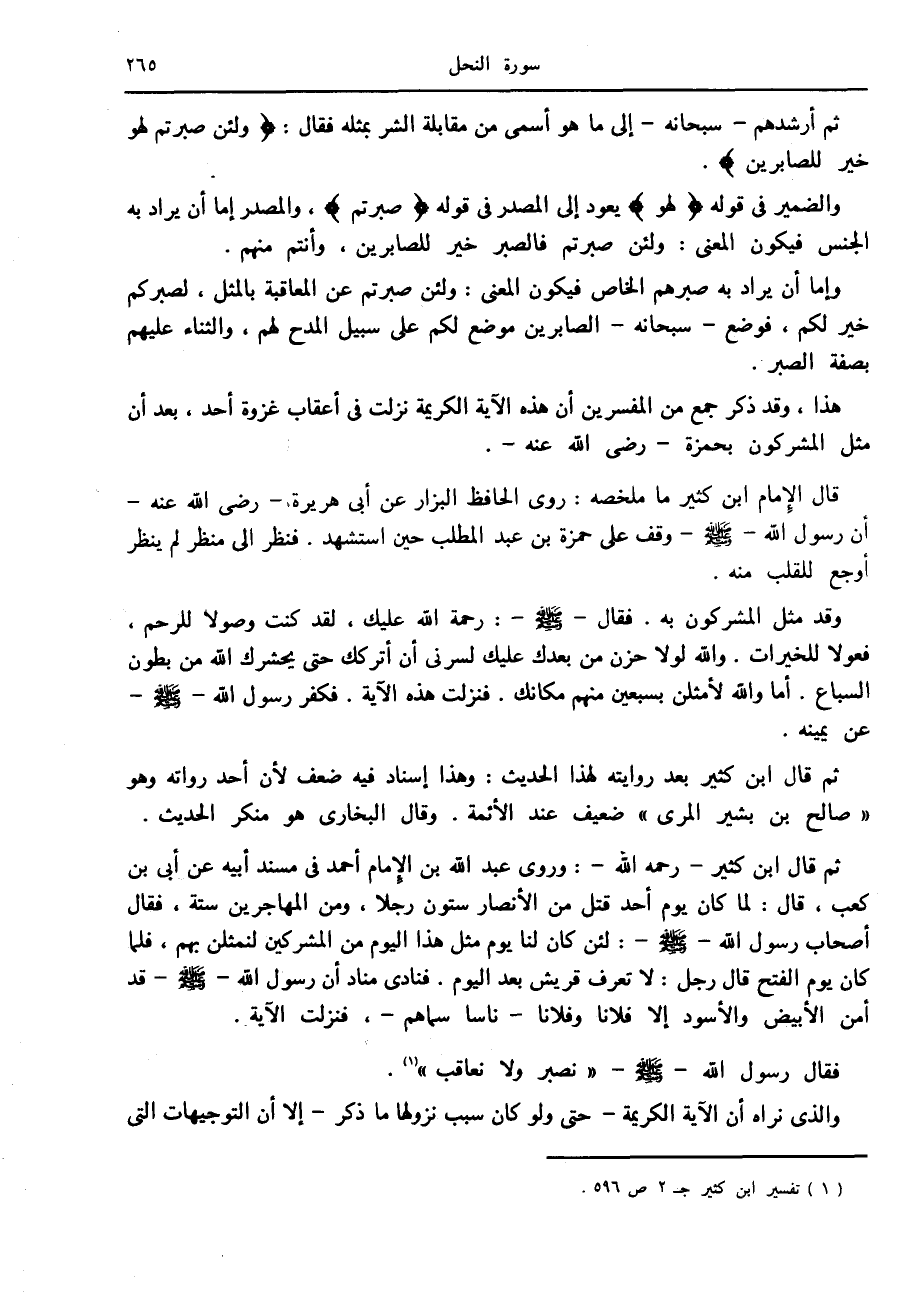 سورة النحل ٢٦٥
ثم أرشدهم – سبحانه – إلى ما هو أسمى من مقابلة الشر بمثله فقال : ﴿ ولئن صبرتم لهو
خير للصابرين ﴾ .
والضمير فى قوله ﴿ لهو ﴾ يعود إلى المصدر فى قوله ﴿ صبرتم ﴾ ، والمصدر إما أن يراد به
الجنس فيكون المعنى : ولئن صبرتم فالصبر خير للصابرين ، وأنتم منهم .
وإما أن يراد به صبرهم الخاص فيكون المعنى : ولئن صبرتم عن المعاقبة بالمثل ، لصبركم
خير لكم ، فوضع – سبحانه – الصابرين موضع لكم على سبيل المدح لهم ، والثناء عليهم
بصفة الصبر .
هذا ، وقد ذكر جمع من المفسرين أن هذه الآية الكريمة نزلت فى أعقاب غزوة أحد ، بعد أن
مثل المشركون بحمزة – رضى الله عنه – .
قال الإمام ابن كثير ما ملخصه : روى الحافظ البزار عن أبى هريرة – رضى الله عنه –
أن رسول الله – ﷺ – وقف على حمزة بن عبد المطلب حين استشهد . فنظر الى منظر لم ينظر
أوجع للقلب منه .
وقد مثل المشركون به . فقال – ﷺ – : رحمة الله عليك ، لقد كنت وصولا للرحم ،
فعولا للخيرات . والله لولا حزن من بعدك عليك لسرنى أن أتركك حتى يحشرك الله من بطون
السباع . أما والله لأمثلن بسبعين منهم مكانك . فنزلت هذه الآية . فكفر رسول الله – ﷺ –
عن يمينه .
ثم قال ابن كثير بعد روايته لهذا الحديث : وهذا إسناد فيه ضعف لأن أحد رواته وهو
« صالح بن بشير المرى » ضعيف عند الأئمة . وقال البخارى هو منكر الحديث .
ثم قال ابن كثير – رحمه الله – : وروى عبد الله بن الإمام أحمد فى مسند أبيه عن أبى بن
كعب ، قال : لما كان يوم أحد قتل من الأنصار ستون رجلا ، ومن المهاجرين ستة ، فقال
أصحاب رسول الله – ﷺ – : لئن كان لنا يوم مثل هذا اليوم من المشركين لنمثلن بهم ، فلما
كان يوم الفتح قال رجل : لا تعرف قريش بعد اليوم . فنادى مناد أن رسول الله – ﷺ – قد
أمن الأبيض والأسود إلا فلانا وفلانا – ناسا سماهم – ، فنزلت الآية .
فقال رسول الله – ﷺ – « نصبر ولا نعاقب »(١) .
والذى نراه أن الآية الكريمة – حتى ولو كان سبب نزولها ما ذكر – إلا أن التوجيهات التى
( ١ ) تفسير ابن كثير جـ ٢ ص ٥٩٦ .